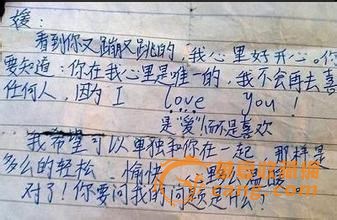 媛：
看到你又蹦又跳的，我心里好开心。你
要知道：你在我心里是唯一的，我不会再去喜
任何人，因为 I love you！
是“爱”而不是喜欢
我希望可以单独和你在一起，那样是
多么的轻松、愉快
对了！你要问我的问题是什么？